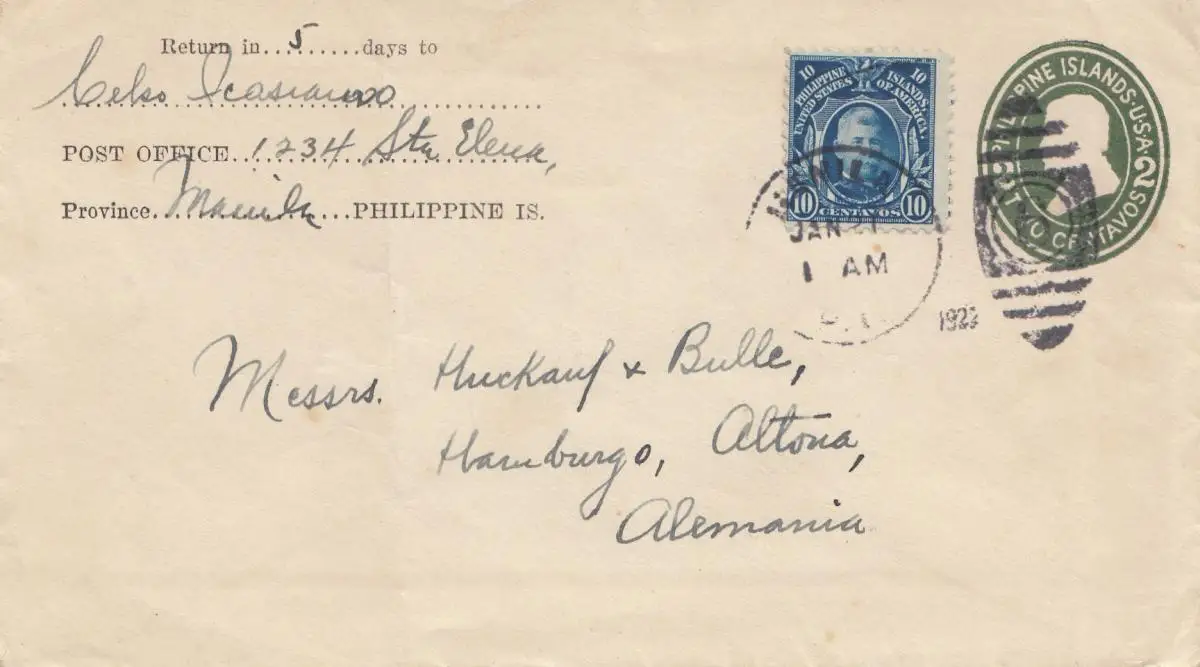 Return in..5......days to
Celso Icasiano
POST OFFICE..1234 Sta Elena,
Province. Manila...PHILIPPINE IS.
10 10
PHILIPPINE ISLANDS,
UNITED STATES OF AMERICA.
10 CENTAVOS 10
PHILIPPINE ISLANDS·U·S·A·
2 CENTAVOS
MANILA
JAN
1 AM
P.I.
Messrs. Huckauf & Bulle,
Hamburgo, Altona,
Alemania